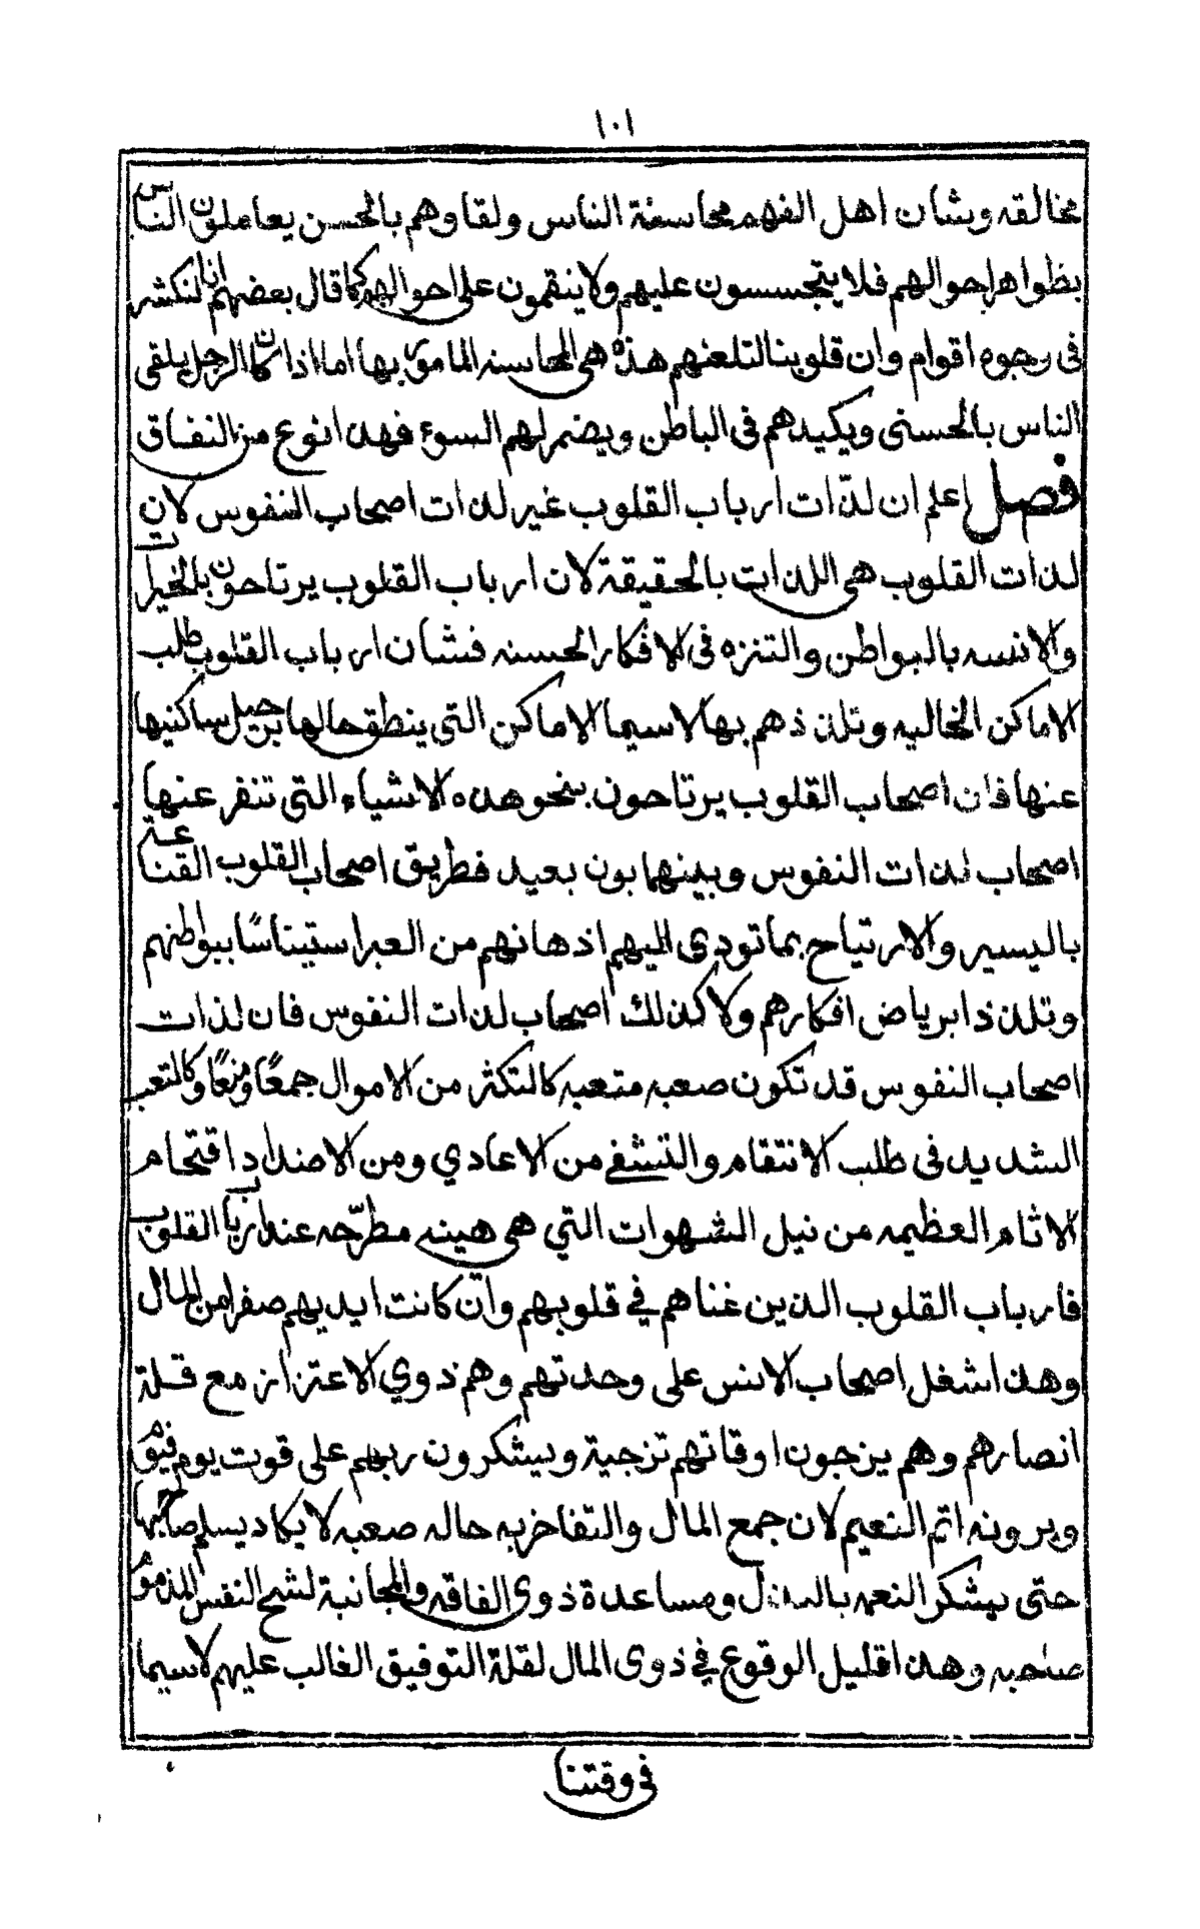 ١٠١
مخالقه وشان اهل الفهم محاسنة الناس ولقاوهم بالحسن يعاملون الناس
بظواهر احوالهم فلا يتجسسون عليهم ولا ينقمون على احوالهم كما قال بعضهم انا لنكشر
فى وجوه اقوام وان قلوبنا لتلعنهم هذه هى المحاسنه المامور بها اما اذا كان الرجل يلقى
الناس بالحسنى ويكيدهم فى الباطن ويضمر لهم السوء فهذا نوع من النفاق
فصل اعلم ان لذّات ارباب القلوب غير لذات اصحاب النفوس لان
لذات القلوب هى اللذات بالحقيقة لان ارباب القلوب يرتاحون بالخيرات
والانسه بالبواطن والتنزه فى الافكار الحسنه فشان ارباب القلوب طلب
الاماكن الخاليه وتلذذهم بها لاسيما الاماكن التى ينطق حالها برحيل ساكنيها
عنها فان اصحاب القلوب يرتاحون بنحو هذه الاشياء التى تنفر عنها
اصحاب لذات النفوس وبينهما بون بعيد فطريق اصحاب القلوب القناعة
باليسير والارتياح بما تودى اليهم اذهانهم من العبر استيناسًا ببواطنهم
وتلذذا برياض افكارهم ولا كذلك اصحاب لذات النفوس فان لذات
اصحاب النفوس قد تكون صعبه متعبه كالتكثر من الاموال جمعًا ومنعًا وكالتعب
الشديد فى طلب الانتقام والتشفي من الاعادي ومن الاضداد اقتحام
الاثام العظيمه من نيل الشهوات التي هى هينه مطرّحه عند ارباب القلوب
فارباب القلوب الذين غناهم في قلوبهم وان كانت ايديهم صفرا من المال
وهذا شغل اصحاب الانس على وحدتهم وهم ذوي الاعتزاز مع قلة
انصارهم وهم يزجون اوقاتهم تزجية ويشكرون ربهم على قوت يومهم
ويرونه اتم النعيم لان جمع المال والتفاخر به حاله صعبه لا يكاد يسلم صاحبها
حتى يشكر النعمه بالبذل ومساعدة ذوى الفاقه والمجانبة لشح النفس المذموم
صاحبه وهذا قليل الوقوع في ذوى المال لقلة التوفيق الغالب عليهم لاسيما
فى وقتنا